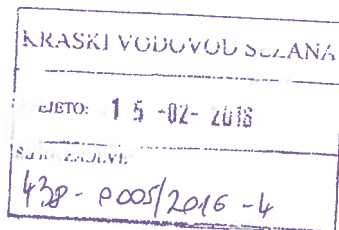 KRASKI VODOVOD SEŽANA
PREJETO: 15 -02- 2016
438 - P005/2016 - 4